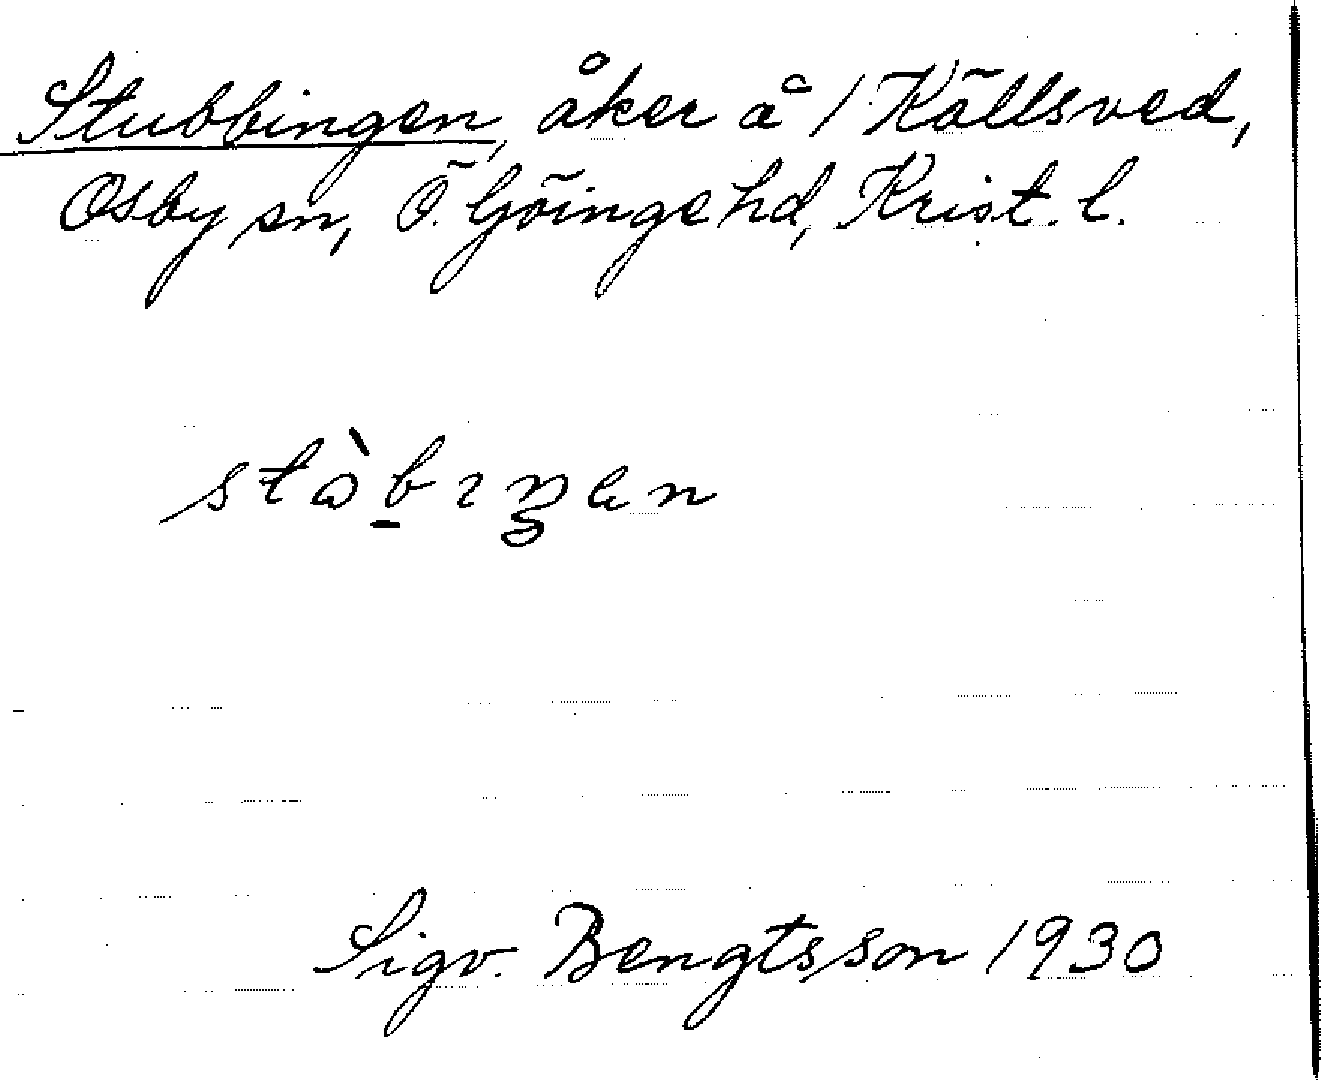 Stubbingen, åker å 1 Källsved,
Osby sn, Ö. Göinge hd, Krist. l.
stòbıŋen
Sigv. Bengtsson 1930